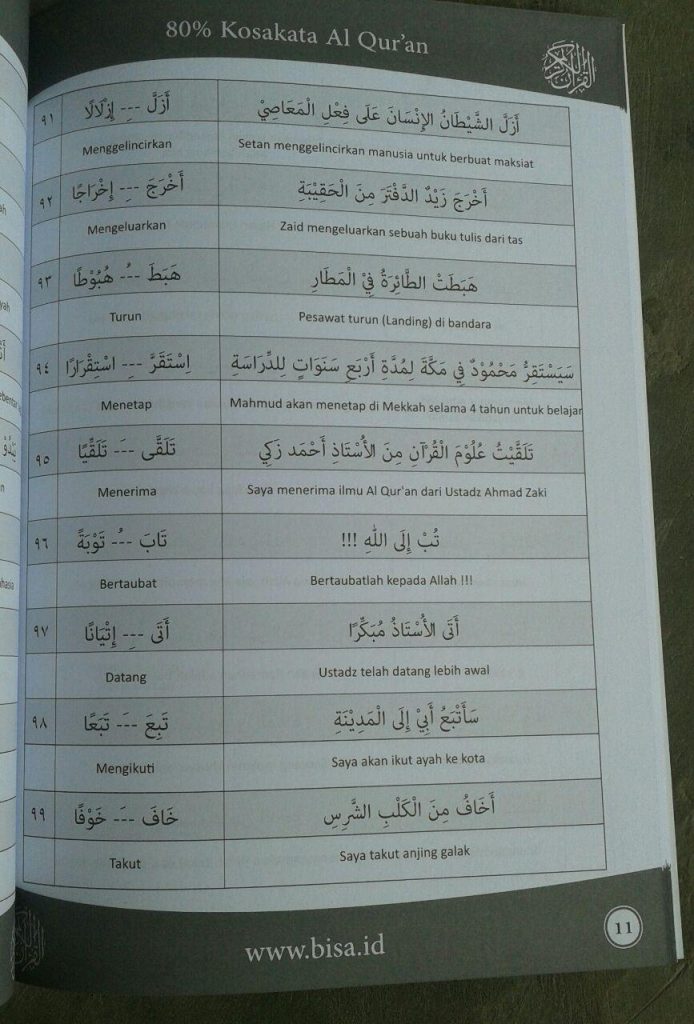 80% Kosakata Al Qur'an
٩١ أَزَلَّ --ِ- إِزْلَالًا أَزَلَّ الشَّيْطَانُ الإِنْسَانَ عَلَى فِعْلِ الْمَعَاصِيْ
Menggelincirkan Setan menggelincirkan manusia untuk berbuat maksiat
٩٢ أَخْرَجَ --ِ- إِخْرَاجًا أَخْرَجَ زَيْدٌ الدَّفْتَرَ مِنَ الْحَقِيْبَةِ
Mengeluarkan Zaid mengeluarkan sebuah buku tulis dari tas
٩٣ هَبَطَ --ُ- هُبُوْطًا هَبَطَتْ الطَّائِرَةُ فِيْ الْمَطَارِ
Turun Pesawat turun (Landing) di bandara
٩٤ اِسْتَقَرَّ --ِ- اسْتِقْرَارًا سَيَسْتَقِرُّ مَحْمُوْدٌ فِي مَكَّةَ لِمُدَّةِ أَرْبَعِ سَنَوَاتٍ للدِّرَاسَةِ
Menetap Mahmud akan menetap di Mekkah selama 4 tahun untuk belajar
٩٥ تَلَقَّى --َ- تَلَقِّيًا تَلَقَّيْتُ عُلُوْمَ الْقُرْآنِ مِنَ الأُسْتَاذِ أَحْمَد زَكِي
Menerima Saya menerima ilmu Al Qur'an dari Ustadz Ahmad Zaki
٩٦ تَابَ --ُ- تَوْبَةً تُبْ إِلَى اللهِ !!!
Bertaubat Bertaubatlah kepada Allah !!!
٩٧ أَتَى --ِ- إِتْيَانًا أَتَى الأُسْتَاذُ مُبَكِّرًا
Datang Ustadz telah datang lebih awal
٩٨ تَبِعَ --َ- تَبَعًا سَأَتْبَعُ أَبِيْ إِلَى الْمَدِيْنَةِ
Mengikuti Saya akan ikut ayah ke kota
٩٩ خَافَ --َ- خَوْفًا أَخَافُ مِنَ الْكَلْبِ الشَّرِسِ
Takut Saya takut anjing galak
www.bisa.id
11